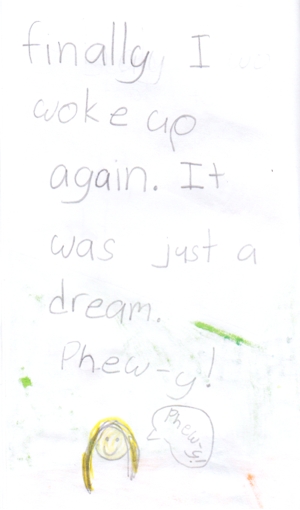 finally, I
woke up
again. It
was just a
dream.
Phew-y!
Phew-y!